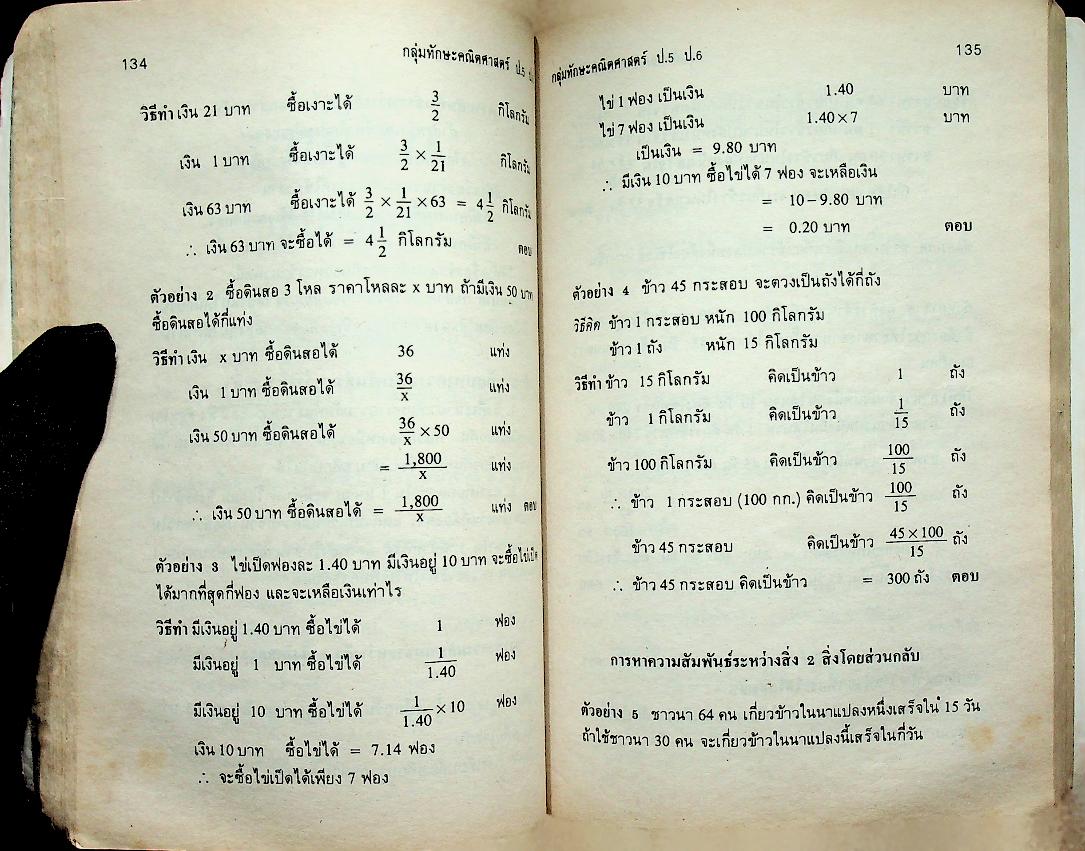 134
กลุ่มทักษะคณิตศาสตร์ ป.5
วิธีทำ เงิน 21 บาท ซื้อเงาะได้ 3/2 กิโลกรัม
เงิน 1 บาท ซื้อเงาะได้ 3/2 × 1/21 กิโลกรัม
เงิน 63 บาท ซื้อเงาะได้ 3/2 × 1/21 × 63 = 4 1/2 กิโลกรัม
∴ เงิน 63 บาท จะซื้อได้ = 4 1/2 กิโลกรัม ตอบ
ตัวอย่าง 2 ซื้อดินสอ 3 โหล ราคาโหลละ x บาท ถ้ามีเงิน 50 บาท
ซื้อดินสอได้กี่แท่ง
วิธีทำ เงิน x บาท ซื้อดินสอได้ 36 แท่ง
เงิน 1 บาท ซื้อดินสอได้ 36/x แท่ง
เงิน 50 บาท ซื้อดินสอได้ 36/x × 50 แท่ง
= 1,800/x แท่ง
∴ เงิน 50 บาท ซื้อดินสอได้ = 1,800/x แท่ง ตอบ
ตัวอย่าง 3 ไข่เป็ดฟองละ 1.40 บาท มีเงินอยู่ 10 บาท จะซื้อไข่เป็ด
ได้มากที่สุดกี่ฟอง และจะเหลือเงินเท่าไร
วิธีทำ มีเงินอยู่ 1.40 บาท ซื้อไข่ได้ 1 ฟอง
มีเงินอยู่ 1 บาท ซื้อไข่ได้ 1/1.40 ฟอง
มีเงินอยู่ 10 บาท ซื้อไข่ได้ 1/1.40 × 10 ฟอง
เงิน 10 บาท ซื้อไข่ได้ = 7.14 ฟอง
∴ จะซื้อไข่เป็ดได้เพียง 7 ฟอง
กลุ่มทักษะคณิตศาสตร์ ป.5 ป.6
135
ไข่ 1 ฟอง เป็นเงิน 1.40 บาท
ไข่ 7 ฟอง เป็นเงิน 1.40×7 บาท
เป็นเงิน = 9.80 บาท
∴ มีเงิน 10 บาท ซื้อไข่ได้ 7 ฟอง จะเหลือเงิน
= 10−9.80 บาท
= 0.20 บาท ตอบ
ตัวอย่าง 4 ข้าว 45 กระสอบ จะตวงเป็นถังได้กี่ถัง
วิธีคิด ข้าว 1 กระสอบ หนัก 100 กิโลกรัม
ข้าว 1 ถัง หนัก 15 กิโลกรัม
วิธีทำ ข้าว 15 กิโลกรัม คิดเป็นข้าว 1 ถัง
ข้าว 1 กิโลกรัม คิดเป็นข้าว 1/15 ถัง
ข้าว 100 กิโลกรัม คิดเป็นข้าว 100/15 ถัง
∴ ข้าว 1 กระสอบ (100 กก.) คิดเป็นข้าว 100/15 ถัง
ข้าว 45 กระสอบ คิดเป็นข้าว 45×100/15 ถัง
∴ ข้าว 45 กระสอบ คิดเป็นข้าว = 300 ถัง ตอบ
การหาความสัมพันธ์ระหว่างสิ่ง 2 สิ่งโดยส่วนกลับ
ตัวอย่าง 5 ชาวนา 64 คน เกี่ยวข้าวในนาแปลงหนึ่งเสร็จใน 15 วัน
ถ้าใช้ชาวนา 30 คน จะเกี่ยวข้าวในนาแปลงนี้เสร็จในกี่วัน